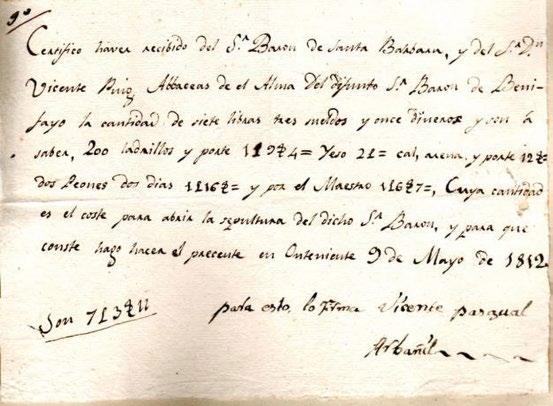 9º
Certifico haver recibido del S.r Baron de Santa Barbara, y del S.r D.n
Vicente Puig Albaceas de el Alma del difunto S.r Baron de Beni-
fayo la cantidad de siete libras tres sueldos y once dineros y son a
saber, 200 ladrillos y porte
dos Peones dos dias y por el Maestro Cuya cantidad
es el coste para abrir la sepultura del dicho S.r Baron, y para que
conste hago hacer el precente en Onteniente 9 de Mayo de 1812
Son para esto, lo Firma Vicente pasqual
Arbañil